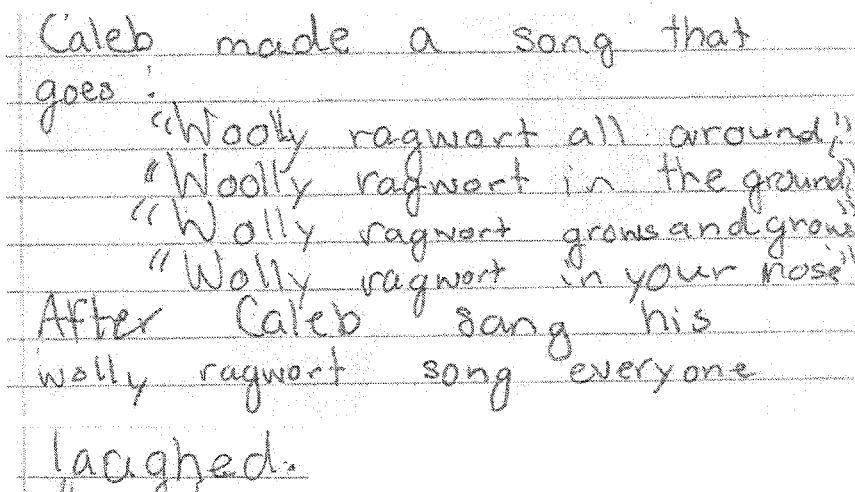 Caleb made a song that
goes:
"Woolly ragwort all around,"
"Woolly ragwort in the ground,"
"Wolly ragwort grows and grows"
"Wolly ragwort in your nose"
After Caleb sang his
wolly ragwort song everyone
laughed.